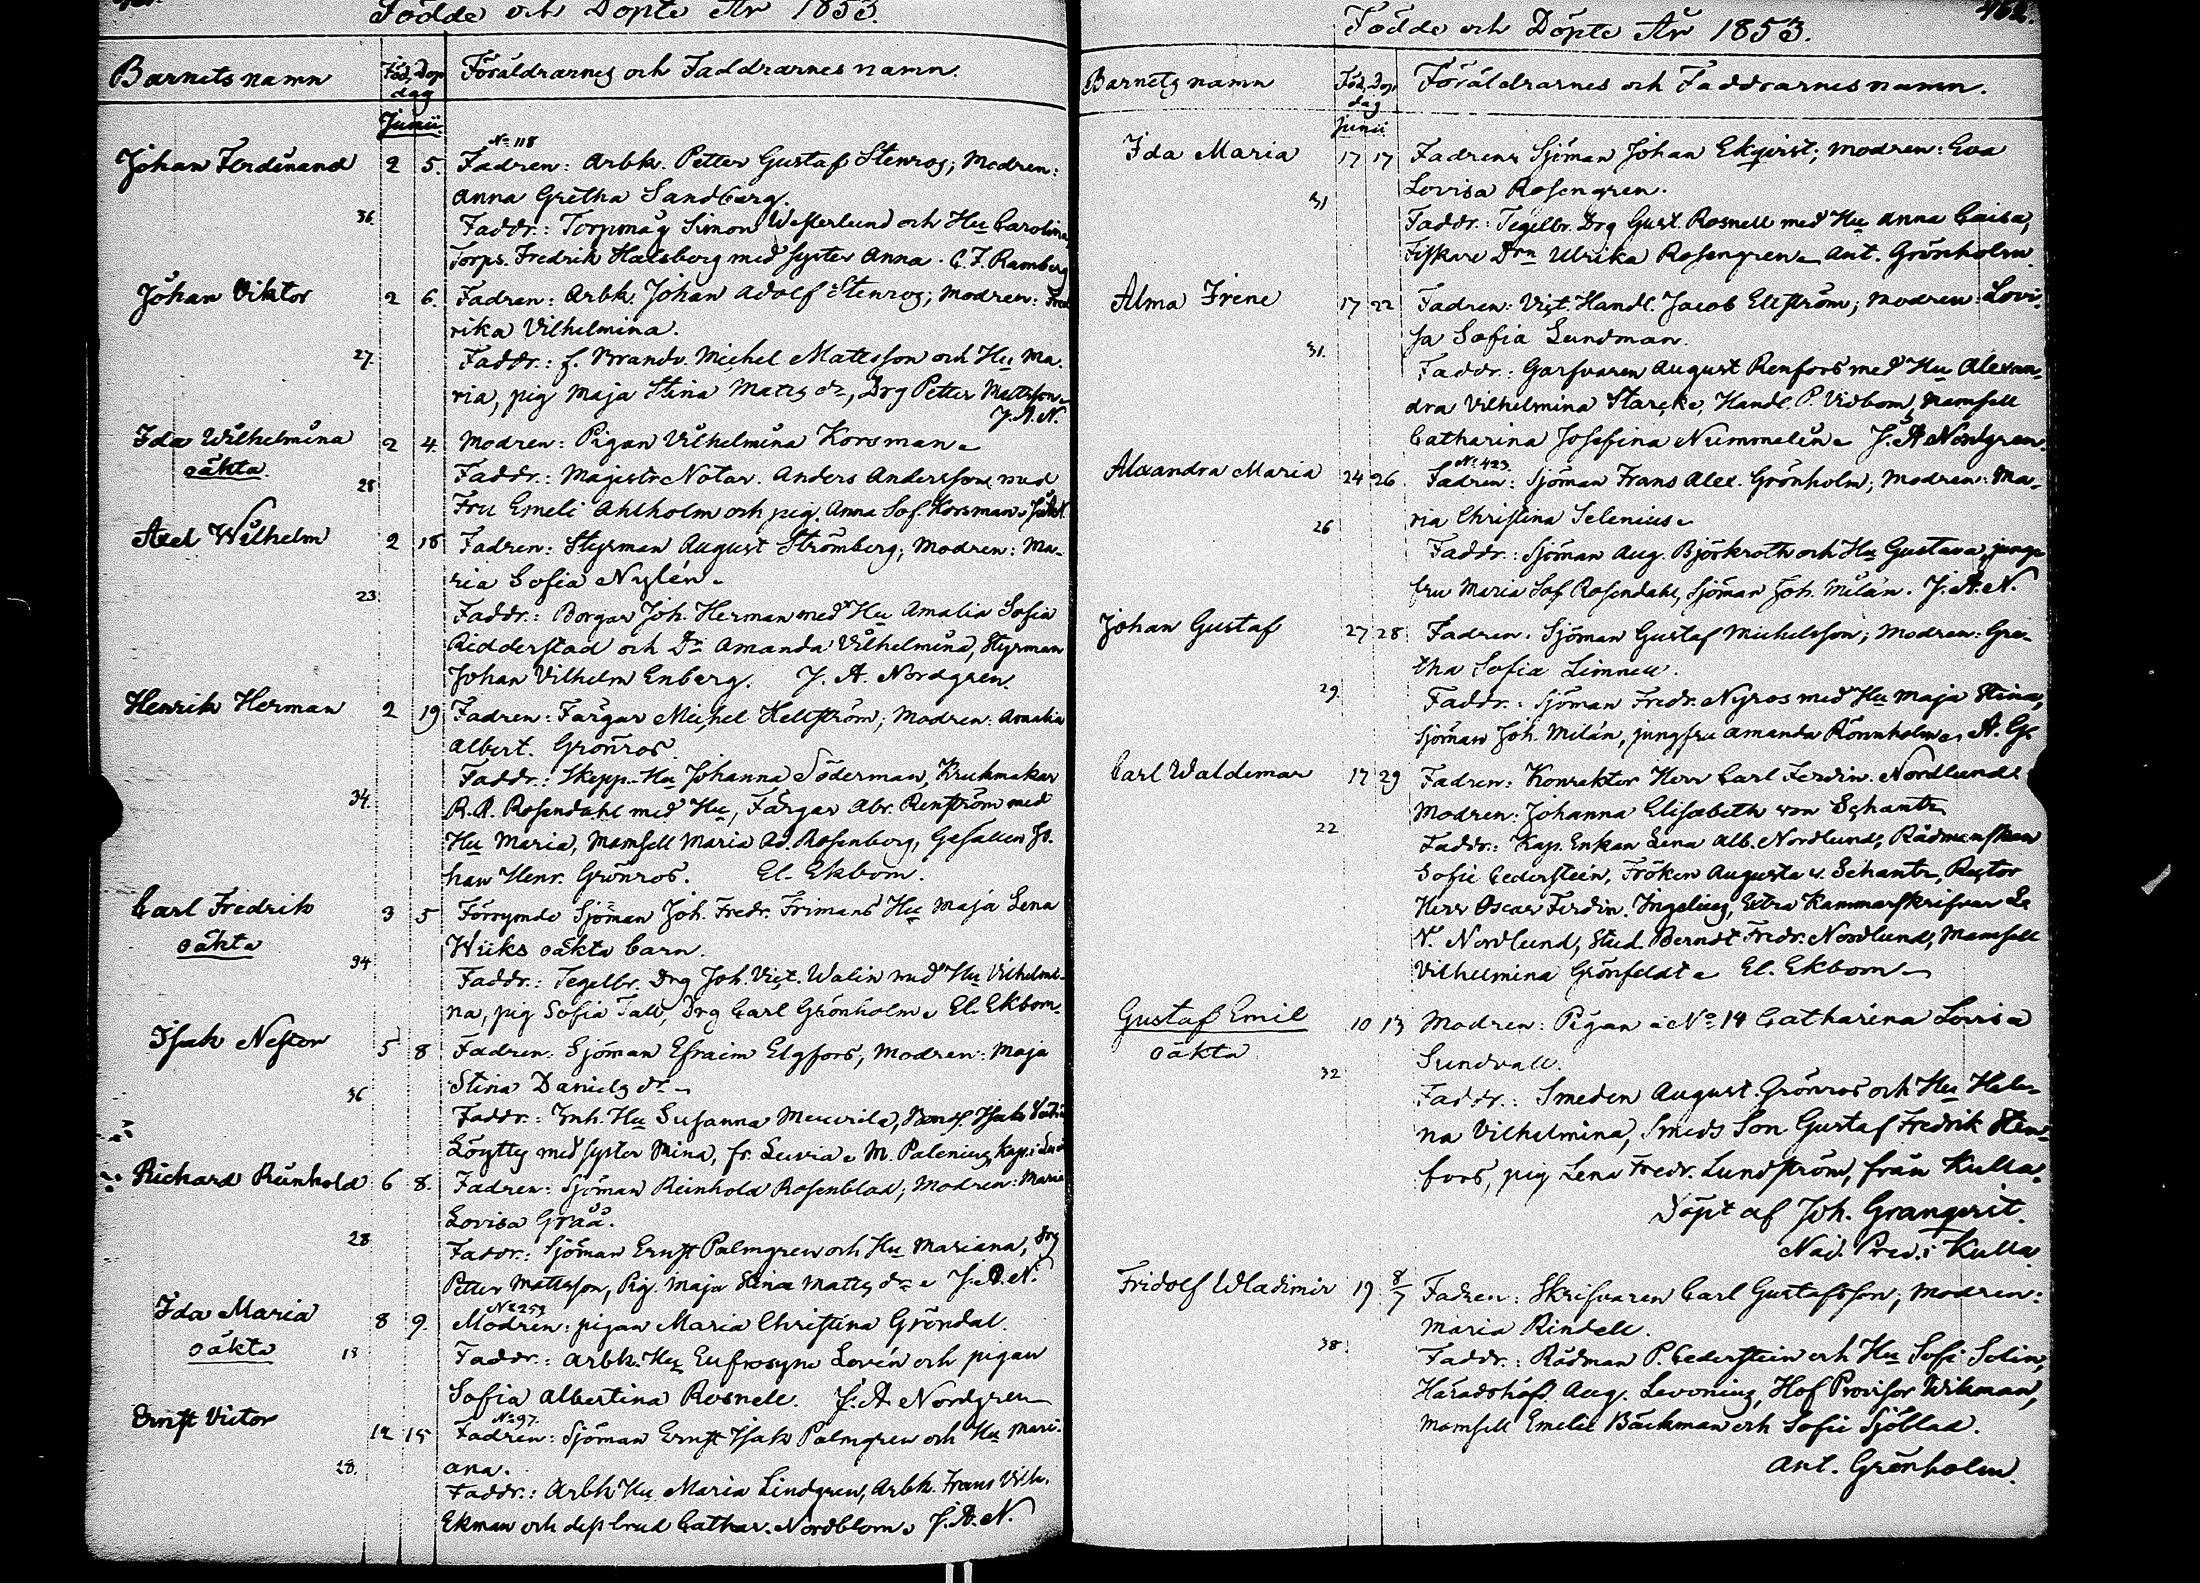 Födde och Döpte År 1853.
Barnets namn Föd. Dop. dag Föräldrarnes och Faddrarnes namn.
Junii.
No 118
Johan Ferdinand 2 5. Fadren: Arbk. Petter Gustaf Stenros; Modren:
Anna Gretha Sandberg.
36. Faddr.: Torpmåg Simon Westerlund och Hu Carolina,
Torps. Fredrik Halsberg med syster Anna. C. F. Ramberg
Johan Viktor 2 6. Fadren: Arbk. Johan Adolf Stenros; Modren: Fred
rika Vilhelmina.
27. Faddr.: f. Brandv. Michel Mattsson och Hu Ma-
ria, pig Maja Stina Matts dr, Drg Petter Mattsson.
J. A. N.
Ida Wilhelmina 2 4. Modren: Pigan Vilhelmina Korsman.
oäkta.
28 Faddr.: Magistr. Notar. Anders Andersson med
Fru Emeli Ahlholm och pig. Anna Sof. Korsman. J.A.N.
Axel Wilhelm 2 18 Fadren: Styrman August Strömberg; Modren: Ma-
ria Sofia Nylén.
23. Faddr.: Borgar Joh. Herman med Hu Amalia Sofia
Ridderstad och Dr Amanda Vilhelmina, Styrman
Johan Vilhelm Enberg. J. A. Nordgren.
Henrik Herman 2 19 Fadren: Färgar Michel Hellström; Modren: Amalia
Albert. Grönros.
Faddr.: Skepp. Hu Johanna Söderman, Krukmakar
34. R. R. Rosendahl med Hu, Färgar Abr. Renström med
Hu Maria, Mamsell Maria Ad. Rosenberg, Gesällen Jo-
han Henr. Grönros. El. Ekbom.
Carl Fredrik 3 5 Försymde Sjöman Joh. Fredr. Frimans Hu Maja Lena
oäkta Wiiks oäkta barn.
34 Faddr.: Tegelbr. Drg Joh. Vict. Walin med Hu Vilhelmi-
na, pig Sofia Tall, Drg Carl Grönholm. El. Ekbom.
Isak Nestor 5 8 Fadren: Sjöman Efraim Elgfors, Modren: Maja
Stina Daniels dr.
36 Faddr.: Inh. Hu Susanna Meurila, Bonds. Isak
Löytty med syster Mina, fr. Luvia. M. Palenius, Kap. i
Richard Reinhold 6 8. Fadren: Sjöman Reinhold Rosenblad; Modren: Maria
Lovisa Gråå.
28 Faddr.: Sjöman Ernst Palmgren och Hu Mariana, Drg
Petter Mattsson, Pig. Maja Stina Matts dr. J. A. N.
No 259
Ida Maria 8 9. Modren: pigan Maria Christina Gröndal.
oäkta 13 Faddr.: Arbk. Hu Eufrosyne Lovén och pigan
Sofia Albertina Rosnell. J. A. Nordgren
No 97.
Ernst Victor 12 15 Fadren: Sjöman Ernst Isak Palmgren och Hu Mari-
ana.
28. Faddr.: Arbk Hu Maria Lindgren, Arbk. Frans Vilh.
Ekman och dess brud Cathar. Nordblom. J. A. N.
462.
Födde och Döpte År 1853.
Barnets namn Föd. Dop. dag Föräldrarnes och Faddrarnes namn.
Junii
Ida Maria 17 17 Fadren: Sjöman Johan Ekqvist; Modren: Eva
31 Lovisa Rosengren.
Faddr.: Tegelbr. Drg Gust. Rosnell med Hu Anna Caisa,
Fiskare Drn Ulrika Rosengren. Ant. Grönholm.
Alma Irene 17 22 Fadren: Vict. Handl. Jacob Ellström; Modren: Lovi-
sa Sofia Sundman.
31. Faddr.: Garfvaren August Renfors med Hu Alexan-
dra Vilhelmina Starcke, Handl. P. Vidbom, Mamsell
Catharina Josefina Nummelin. J. A. Nordgren.
No 423.
Alexandra Maria 24 26. Fadren: Sjöman Frans Alex. Grönholm; Modren: Ma-
26 ria Christina Selenius.
Faddr.: Sjöman Aug. Björkroth och Hu Gustava, jung-
fru Maria Sof. Rosendahl, Sjöman Joh. Milán. J. A. N.
Johan Gustaf 27 28 Fadren: Sjöman Gustaf Michelsson; Modren: Gre-
tha Sofia Limnell.
29 Faddr.: Sjöman Fredr. Nyros med Hu Maja Stina,
Sjöman Joh. Milán, jungfru Amanda Rönnholm. A. G.
Carl Waldemar 17 29 Fadren: Konrektor Herr Carl Ferdin. Nordlund
Modren: Johanna Elisabeth von Schantz
22 Faddr.: Kap. Enkan Lena Alb. Nordlund, Rådmanskan
Sofie Cederstein, Fröken Augusta v. Schantz, Rector
Herr Oscar Ferdin. Ingelius, Extra Kammarskrifvar
V. Nordlund, Stud. Berndt Fredr. Nordlund, Mamsell
Vilhelmina Grönfeldt. El. Ekbom
Gustaf Emil 10 13 Modren: Pigan å No 14 Catharina Lovisa
oäkta Sundvall.
32 Faddr.: Smeden August Grönros och Hu Hele-
na Vilhelmina, Smeds Son Gustaf Fredrik Sten-
fors, pig Lena Fredr. Lundström, från Kulla.
Döpt af Joh. Granqvist.
Nåd. Pred. i Kulla.
Fridolf Wladimir 19 8/7 Fadren: Skrifvaren Carl Gustafsson; Modren:
Maria Rindell.
38 Faddr.: Rådman P. Cederstein och Hu Sofi Selin,
Häradshöfd. Aug. Levonius, Hof Provisor Wikman,
Mamsell Emelie Bäckman och Sofie Sjöblad.
Ant. Grönholm.